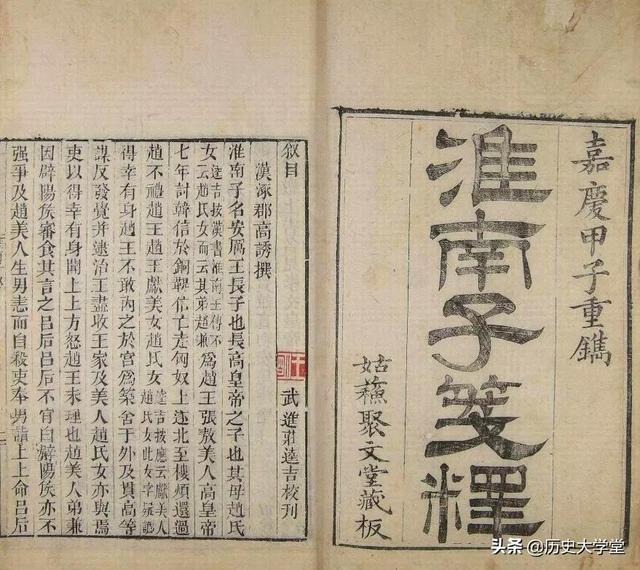 嘉慶甲子重鐫
淮南子箋釋
姑蘇聚文堂藏板
叙目
武進莊逵吉校刊
漢涿郡高誘撰
淮南子名安厲王長子也長高皇帝之子也其母趙氏
女逵吉按漢書淮南王傳不云趙氏女而云其弟趙兼爲趙王張敖美人高皇帝
七年討韓信於銅鞮信亡走匈奴上遂北至樓煩還過
趙不禮趙王趙王獻美女趙氏女逵吉按應云獻美人趙氏女此女字疑譌
得幸有身趙王不敢內之於宮爲築舍于外及貫高等
謀反發覺并逮治王盡收王家及美人趙氏女亦與焉
吏以得幸有身聞上上方怒趙王未理也趙美人弟兼
因辟陽侯審食其言之呂后呂后不肯白辟陽侯亦不
強爭及趙美人生男恚而自殺吏奉男詣上上命呂后
头条 @历史大学堂